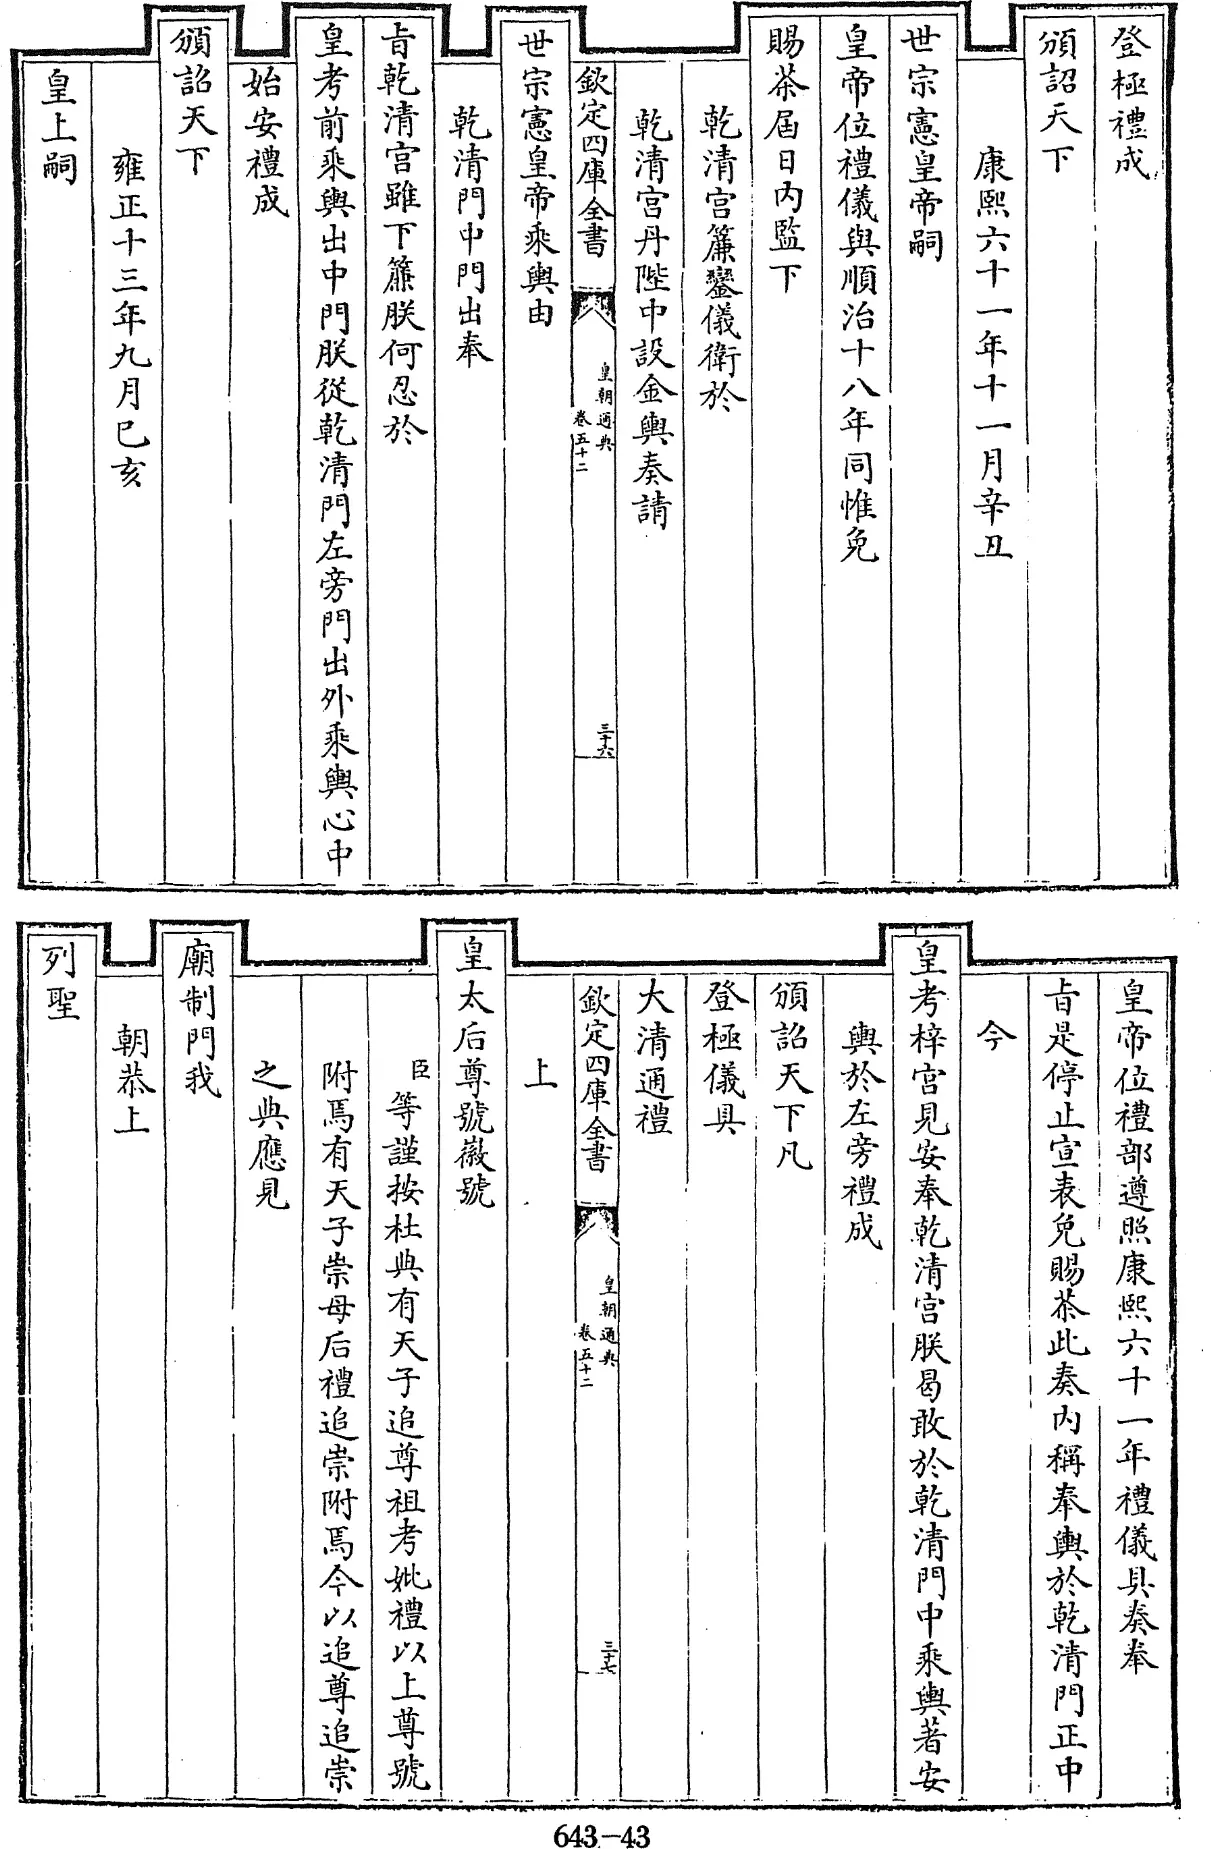 登極禮成
頒詔天下
康熙六十一年十一月辛丑
世宗憲皇帝嗣
皇帝位禮儀與順治十八年同惟免
賜茶屆日內監下
乾清宮簾鑾儀衛於
乾清宮丹陛中設金輿奏請
欽定四庫全書
皇朝通典
卷五十二
三十六
世宗憲皇帝乘輿由
乾清門中門出奉
㫖乾清宮雖下簾朕何忍於
皇考前乘輿出中門朕從乾清門左旁門出外乘輿心中
始安禮成
頒詔天下
雍正十三年九月已亥
皇上嗣
皇帝位禮部遵照康熙六十一年禮儀具奏奉
㫖是停止宣表免賜茶此奏內稱奉輿於乾清門正中
今
皇考梓宮見安奉乾清宮朕曷敢於乾清門中乘輿著安
輿於左旁禮成
頒詔天下凡
登極儀具
大清通禮
欽定四庫全書
皇朝通典
卷五十二
三十七
上
皇太后尊號徽號
臣等謹按杜典有天子追尊祖考妣禮以上尊號
附焉有天子崇母后禮追崇附焉今以追尊追崇
之典應見
廟制門我
朝恭上
列聖
643-43